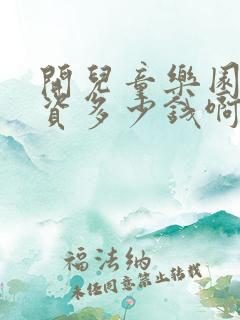 開兒童樂園
資多少錢啊
福法納
未经同意禁止转载